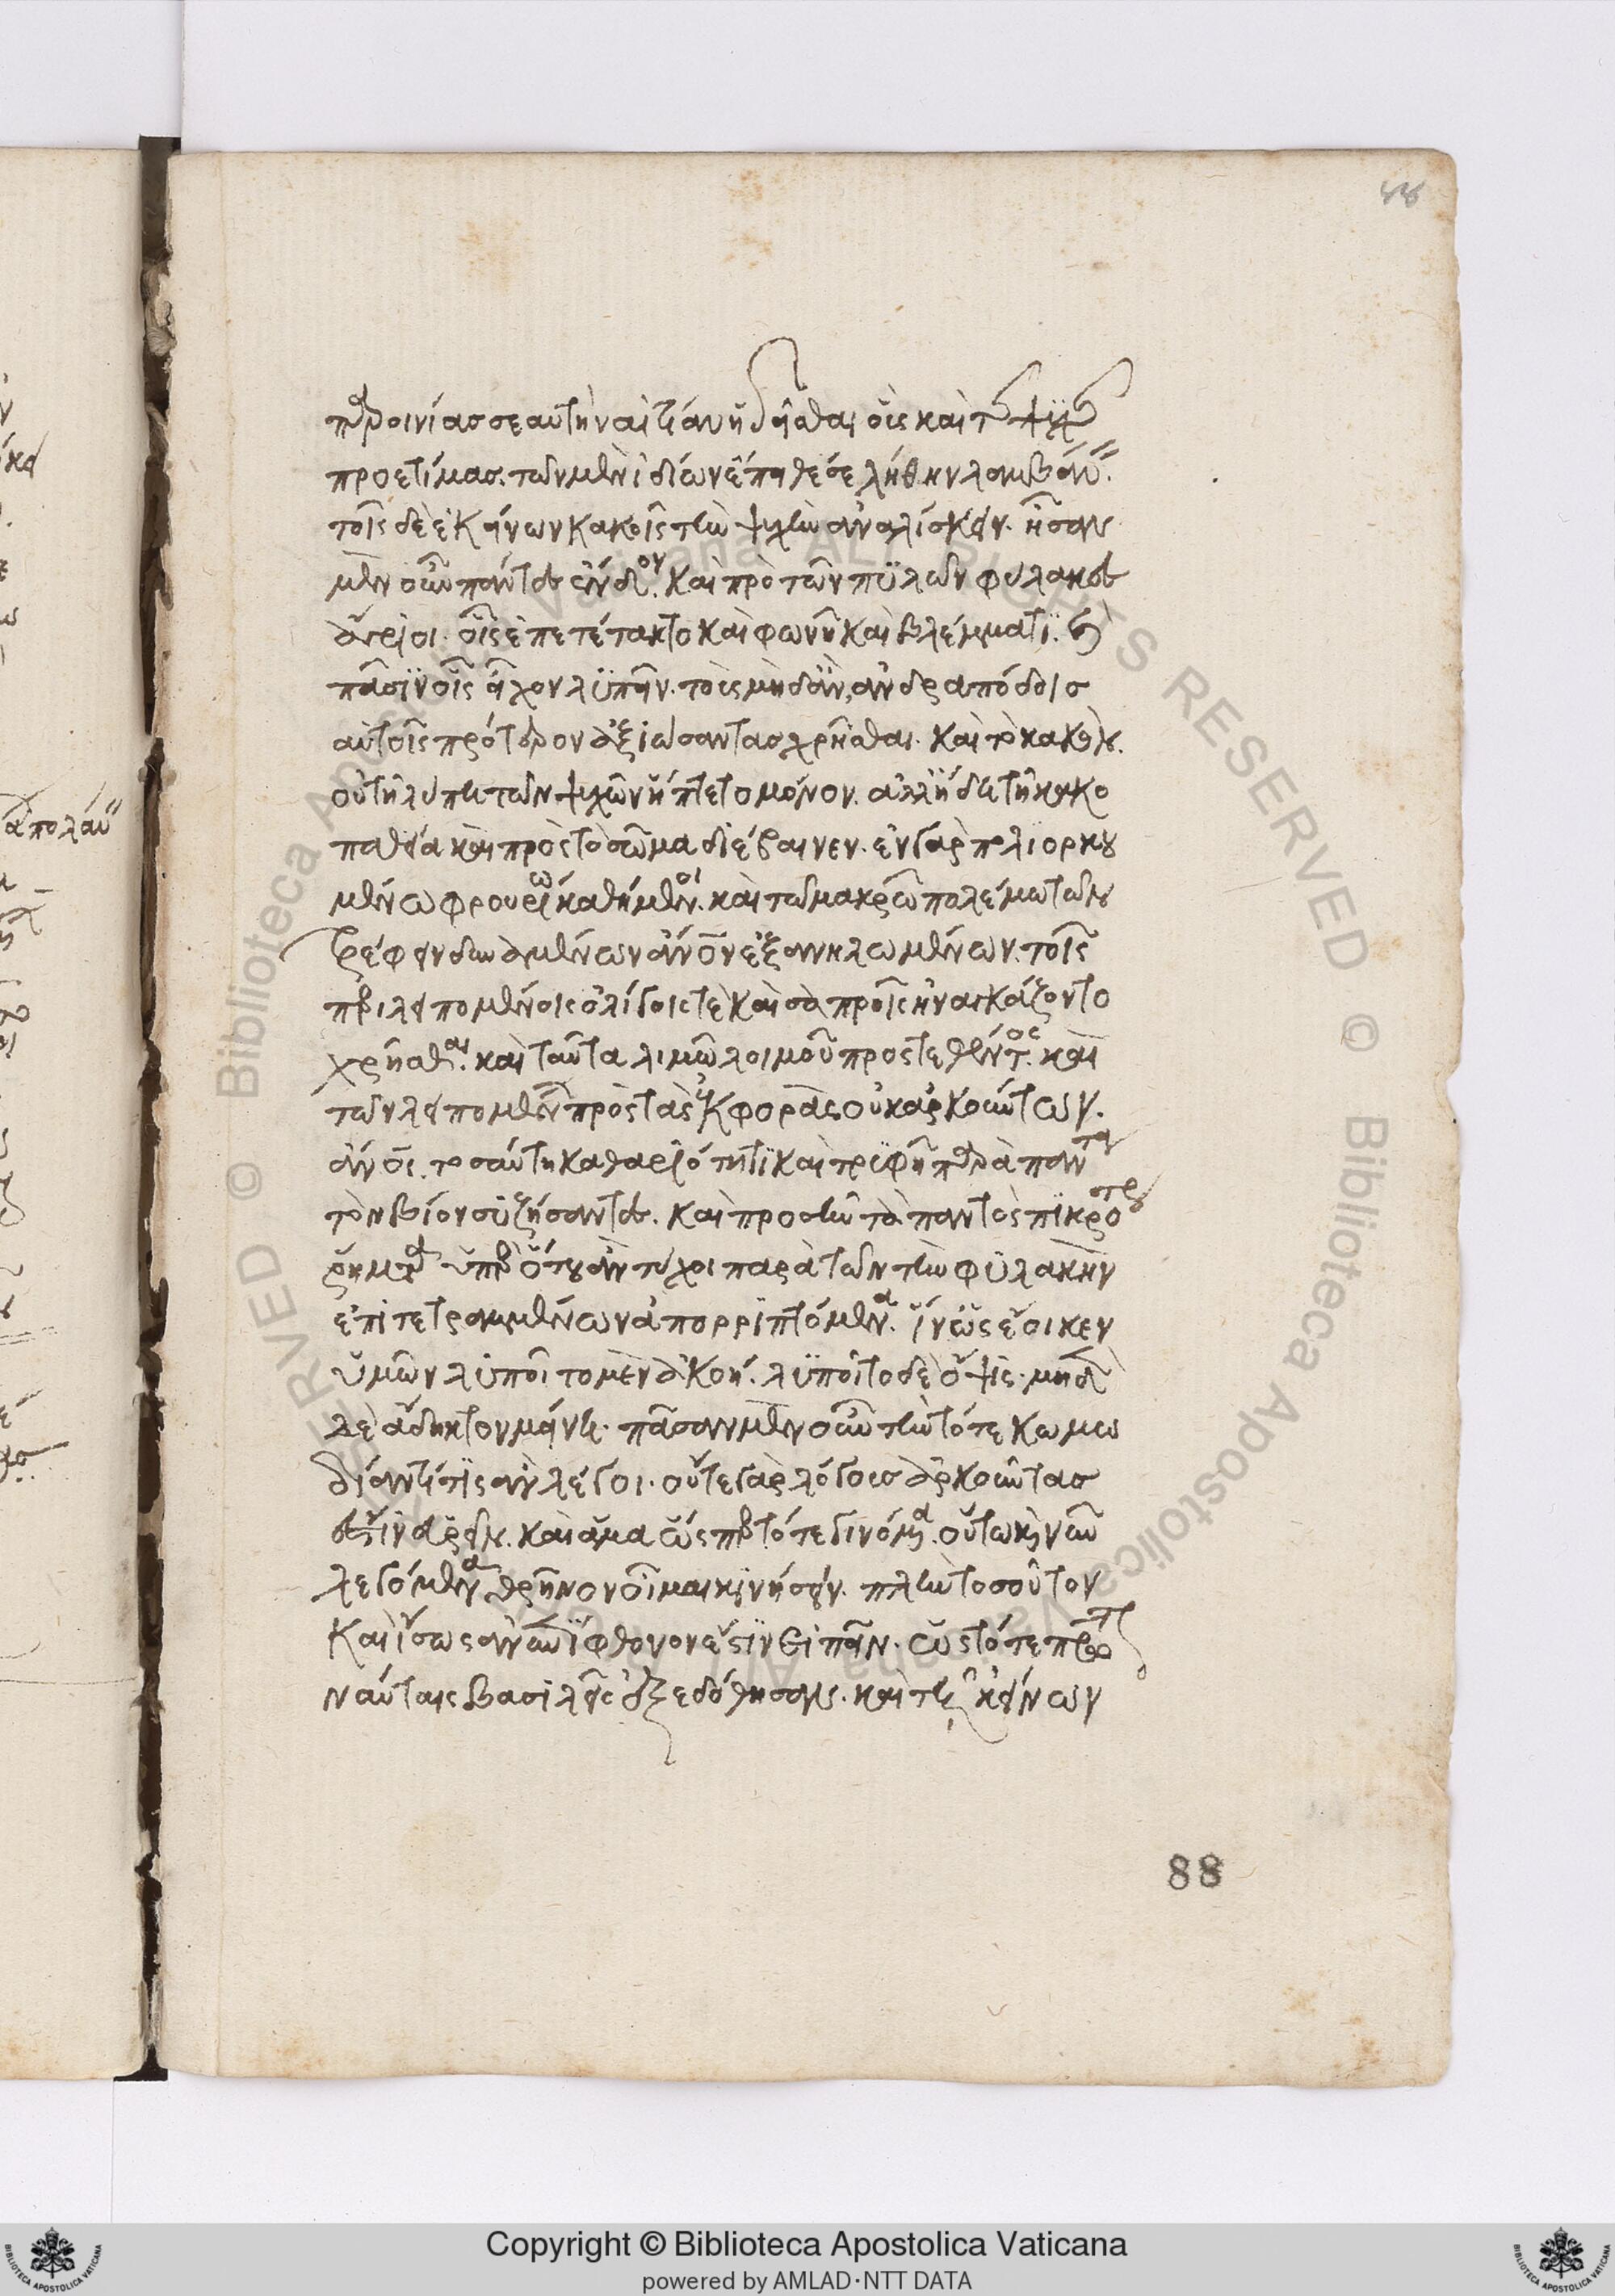 προετίμασ. τῶν μὲν ἰδίων ἔπειθέ σε λήθην λαμβάν
τοῖς δὲ ἐκείνων κακοῖς τὴν ψυχὴν ἀναλίσκειν. ἦσαν
μὲν οὖν πάντες ἔνδον. καὶ πρὸ τῶν πυλῶν φύλακες
ἄγριοι. οἷς ἐπετέτακτο καὶ φωνῇ καὶ βλέμματι. καὶ
πᾶσιν οἷς εἶχον λυπεῖν. τοὺς μηδ' ἂν, ἀνδραπόδοις
αὐτοῖς πρότερον ἀξιώσαντας χρῆσθαι. καὶ τὸ κακὸν.
οὐ τῇ λύπῃ τῶν ψυχῶν ἥπτετο μόνον. ἀλλ' ἤδη τῇ κακο
παθείᾳ καὶ πρὸς τὸ σῶμα διέβαινεν. ἐν γὰρ πολιορκου
μένῳ φρουρίῳ καθήμενοι. καὶ τῷ μακρῷ πολέμῳ τῶν
τρέφειν δυναμένων ἀνθρώπων ἐξανηλωμένων. τοῖς
περιλειπομένοις ὀλίγοις τὲ καὶ σαπροῖς ἠναγκάζοντο
χρῆσθαι. καὶ ταῦτα λιμῷ λοιμοῦ προστεθέντος. καὶ
τῶν λειπομένων πρὸς τὰς ἐκφορὰς οὐκ ἀρκούντων.
ἄνθρωποι. τοσαύτῃ καθαριότητι καὶ τρυφῇ παρὰ πάντα
τὸν βίον συζήσαντες. καὶ προσῆν τὰ παντὸς πικρότερα
ῥήματα ὑπὲρ ὅτου ἂν τύχοι παρὰ τῶν τὴν φυλακὴν
ἐπιτετραμμένων ἀπορριπτόμενα. ἵν' ὡς ἔοικεν
ὑμῶν λυποῖτο μὲν ἀκοή. λυποῖτο δὲ ὄψις. μηδὲν
δὲ ἄδηκτον μένῃ. πᾶσαν μὲν οὖν τὴν τότε κωμῳ
δίαν τί τις ἂν λέγοι. οὔτε γὰρ λόγους ἀρκοῦντας
ἔστιν εὑρεῖν. καὶ ἅμα ὥσπερ τότε γινόμενα. οὕτω καὶ νῦν
λεγόμενα θρῆνον οἶμαι κινήσειν. πλὴν τοσοῦτον
καὶ ἴσως ἂν οὐ φθόνον ἔστιν εἰπεῖν. ὡς τότε πρῶτον
ναύταις βασιλεῖς ἐξεδόθησαν. καὶ τῆς ἐκείνων
88
Copyright © Biblioteca Apostolica Vaticana
powered by AMLAD·NTT DATA